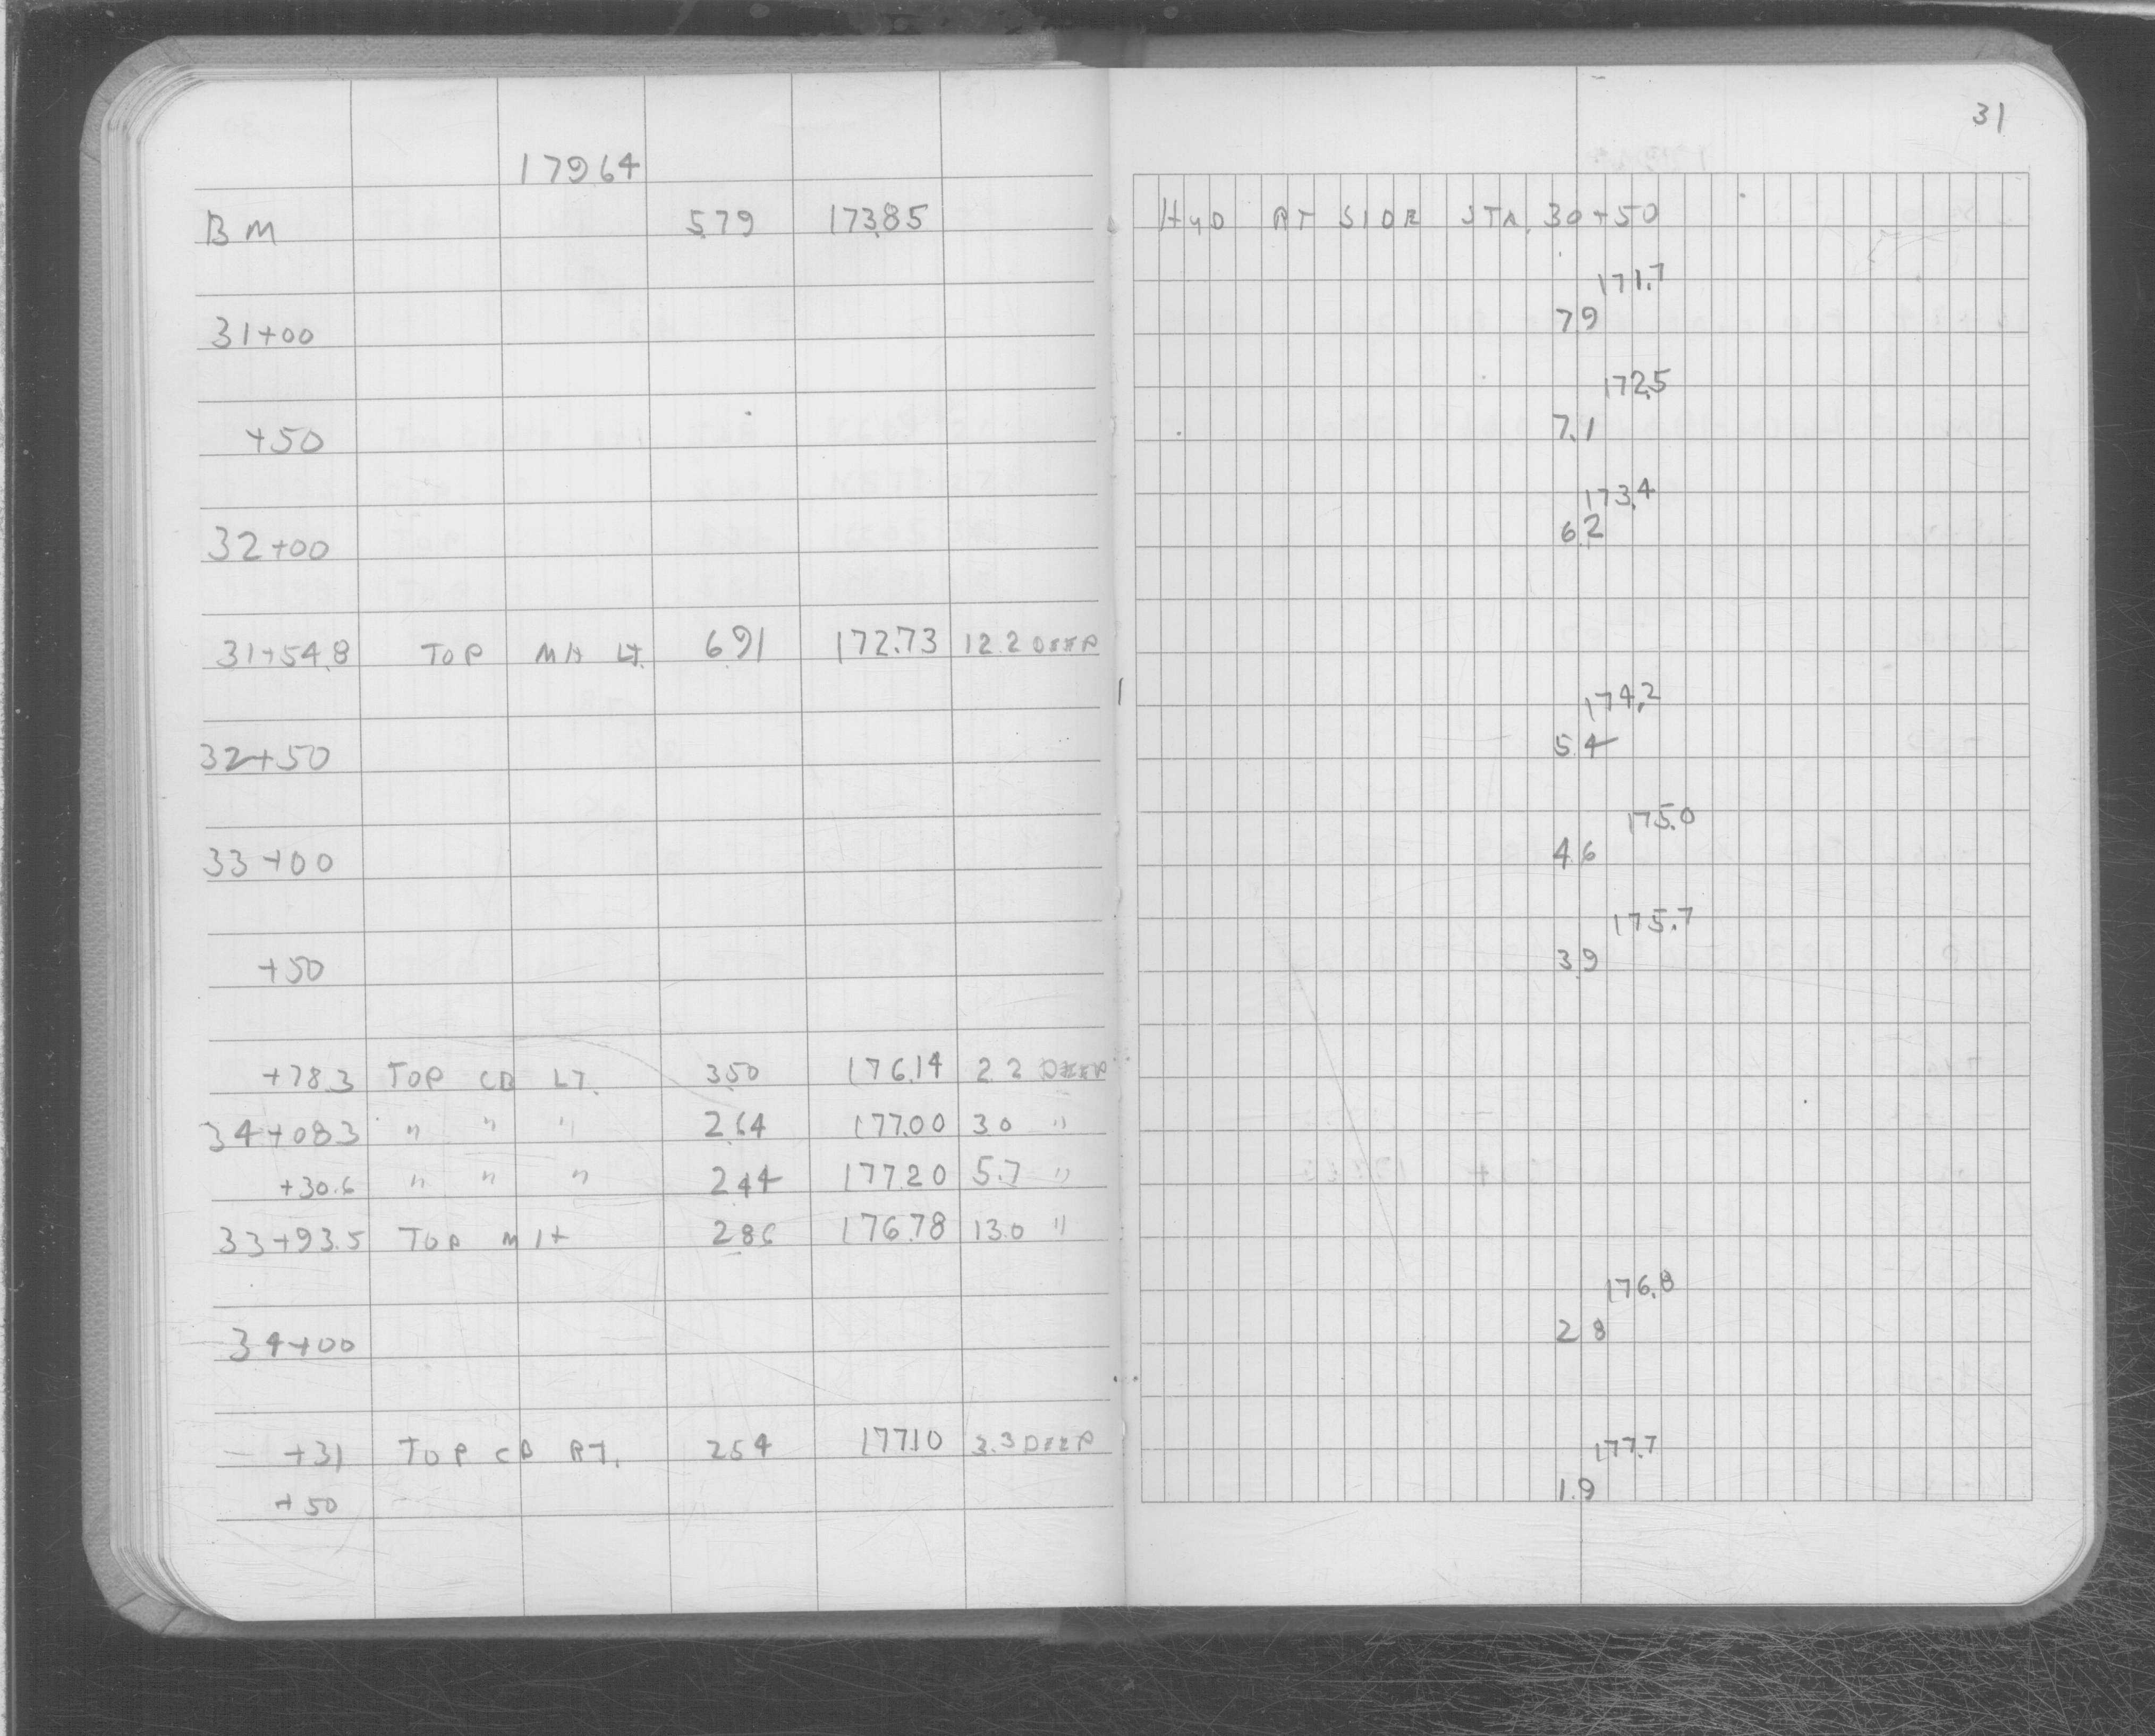 31
179.64
BM 5.79 173.85 HYD RT SIDE STA. 30+50
171.7
31+00 7.9
172.5
+50 7.1
173.4
32+00 6.2
31+54.8 TOP MH LT. 6.91 172.73 12.2 DEEP
174.2
32+50 5.4
175.0
33+00 4.6
175.7
+50 3.9
+78.3 TOP CB LT. 3.50 176.14 2.2 DEEP
34+08.3 " " " 2.64 177.00 3.0 "
+30.6 " " " 2.44 177.20 5.7 "
33+93.5 TOP MH 2.86 176.78 13.0 "
176.8
34+00 2.8
+31 TOP CB RT. 2.54 177.10 3.3 DEEP
177.7
+50 1.9